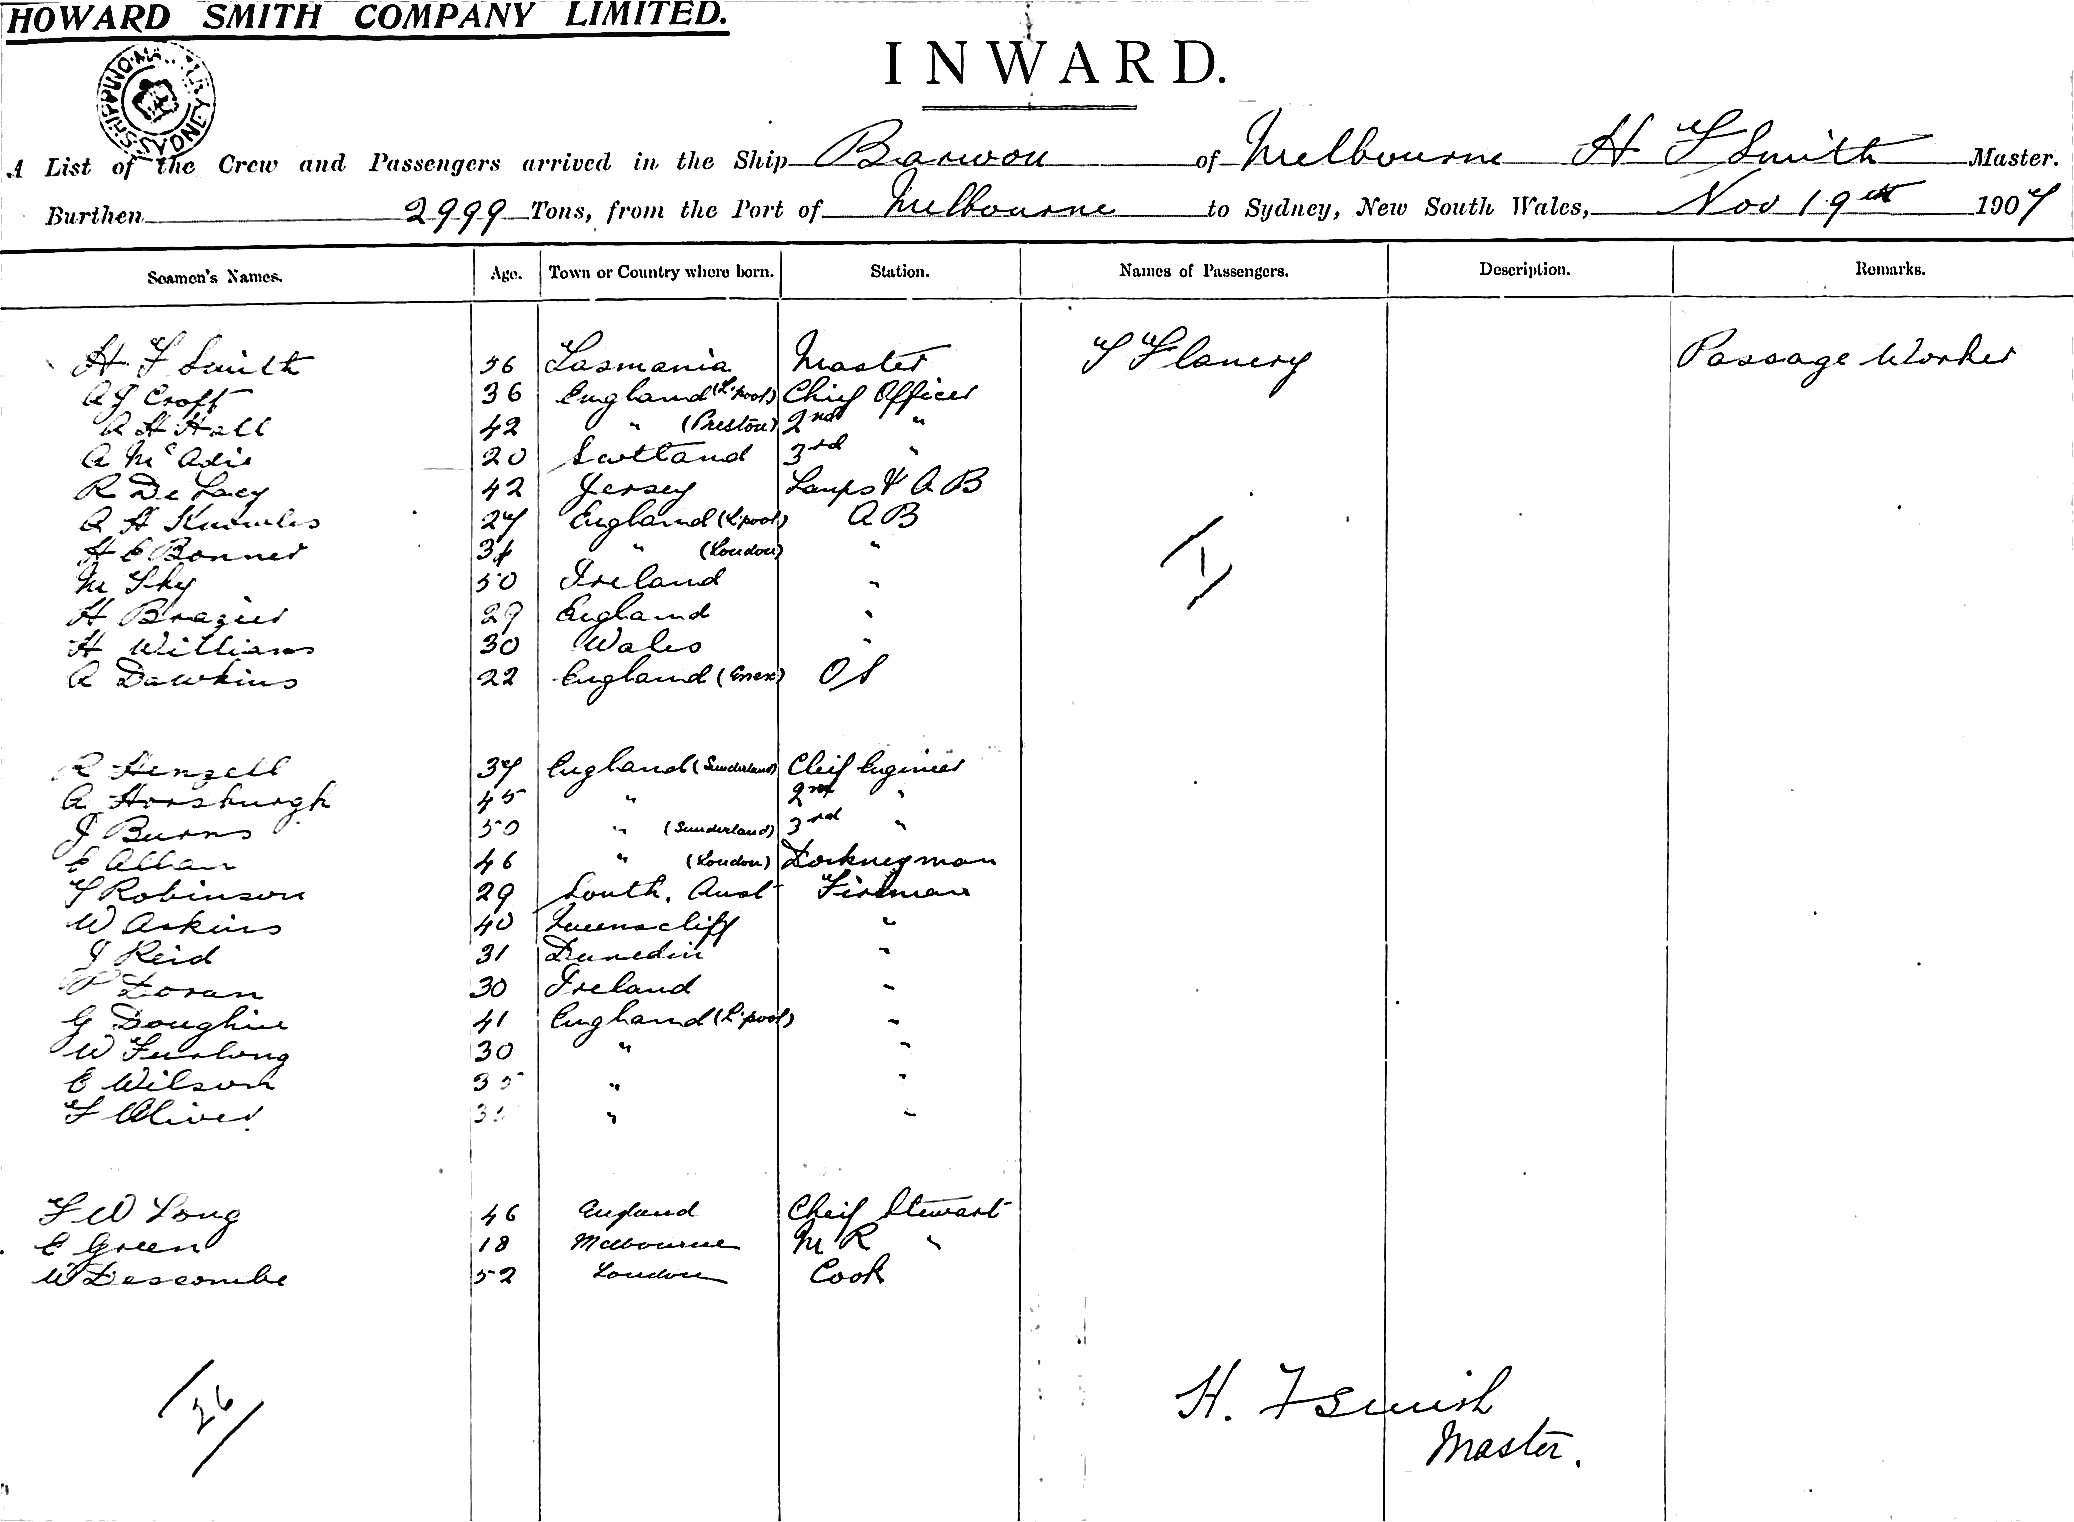 HOWARD SMITH COMPANY LIMITED.
INWARD.
SHIPPING MA SYDNEY
A List of the Crew and Passengers arrived in the Ship Barwon of Melbourne H F Smith Master.
Burthen 2999 Tons, from the Port of Melbourne to Sydney, New South Wales, Nov 19th 1907
Seamen's Names. Age. Town or Country where born. Station. Names of Passengers. Description. Remarks.
H F Smith 56 Tasmania Master T Flanery Passage Worker
A J Croft 36 England (L'pool) Chief Officer
A H Hall 42 " (Preston) 2nd "
A McAdie 20 Scotland 3rd "
R De Lacy 42 Jersey Lamps & A B
A H Knowles 27 England (L'pool) A B
H E Bonner 34 " (London) "
M Shy 50 Ireland "
H Brazier 29 England "
H Williams 30 Wales "
A Dawkins 22 England (Essex) O S
1
R Henzell 37 England (Sunderland) Cheif Engineer
A Horsburgh 45 " 2nd "
J Burns 50 " (Sunderland) 3rd "
E Allan 46 " (London) Donkneyman
T Robinson 29 South. Aust Fireman
W Askins 40 Queenscliff "
J Reid 31 Dunedin "
P Doran 30 Ireland "
G Doughue 41 England (L'pool) "
W Furlong 30 " "
E Wilson 35 " "
F Oliver " "
F W Long 46 England Cheif Stewart
E Green 18 Melbourne M R "
W Descombe 52 London Cook
26
H. F Smith
Master.